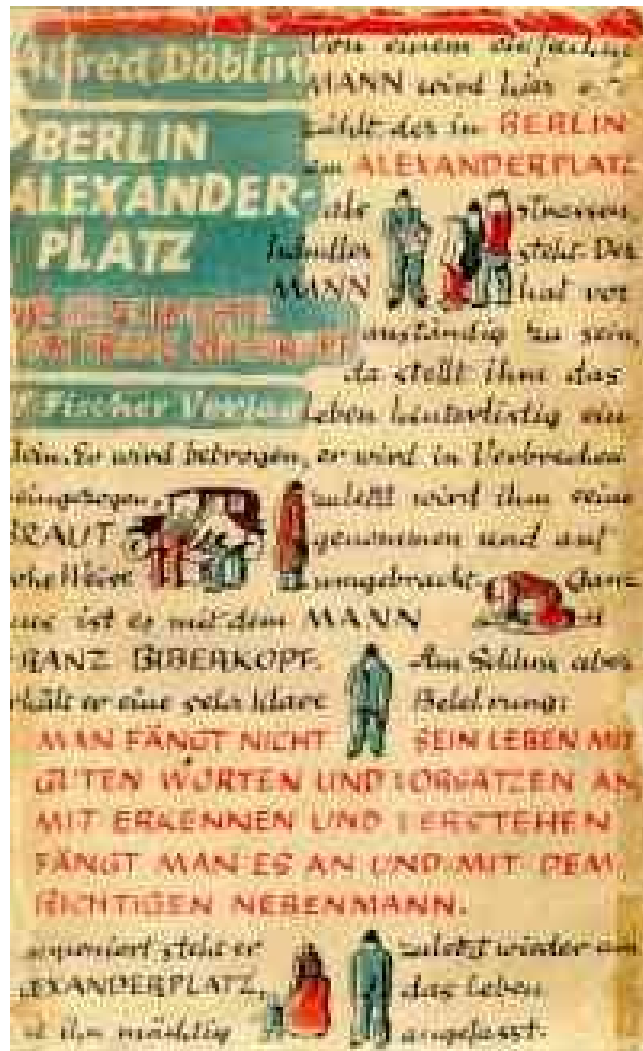 Alfred Döblin
BERLIN
ALEXANDER-
PLATZ
Fischer Verlag
Von einem einfachen
MANN wird hier
zählt, der in BERLIN
am ALEXANDERPLATZ
als Strassen
steht. Der
MANN hat vor
anständig zu sein,
da stellt ihm das
Leben hinterlistig ein
Bein. Er wird betrogen, er wird in Verbrechen
eingezogen, zuletzt wird ihm seine
BRAUT genommen und auf
rohe Weise umgebracht. Ganz
aus ist es mit dem MANN
FRANZ BIBERKOPF. Am Schluss aber
erhält er eine sehr klare Belehrung:
MAN FÄNGT NICHT SEIN LEBEN MIT
GUTEN WORTEN UND VORSÄTZEN AN
MIT ERKENNEN UND VERSTEHEN
FÄNGT MAN ES AN UND MIT DEM
RICHTIGEN NEBENMANN.
steht er zuletzt wieder am
ALEXANDERPLATZ, das Leben
hat ihn mächtig angefasst.